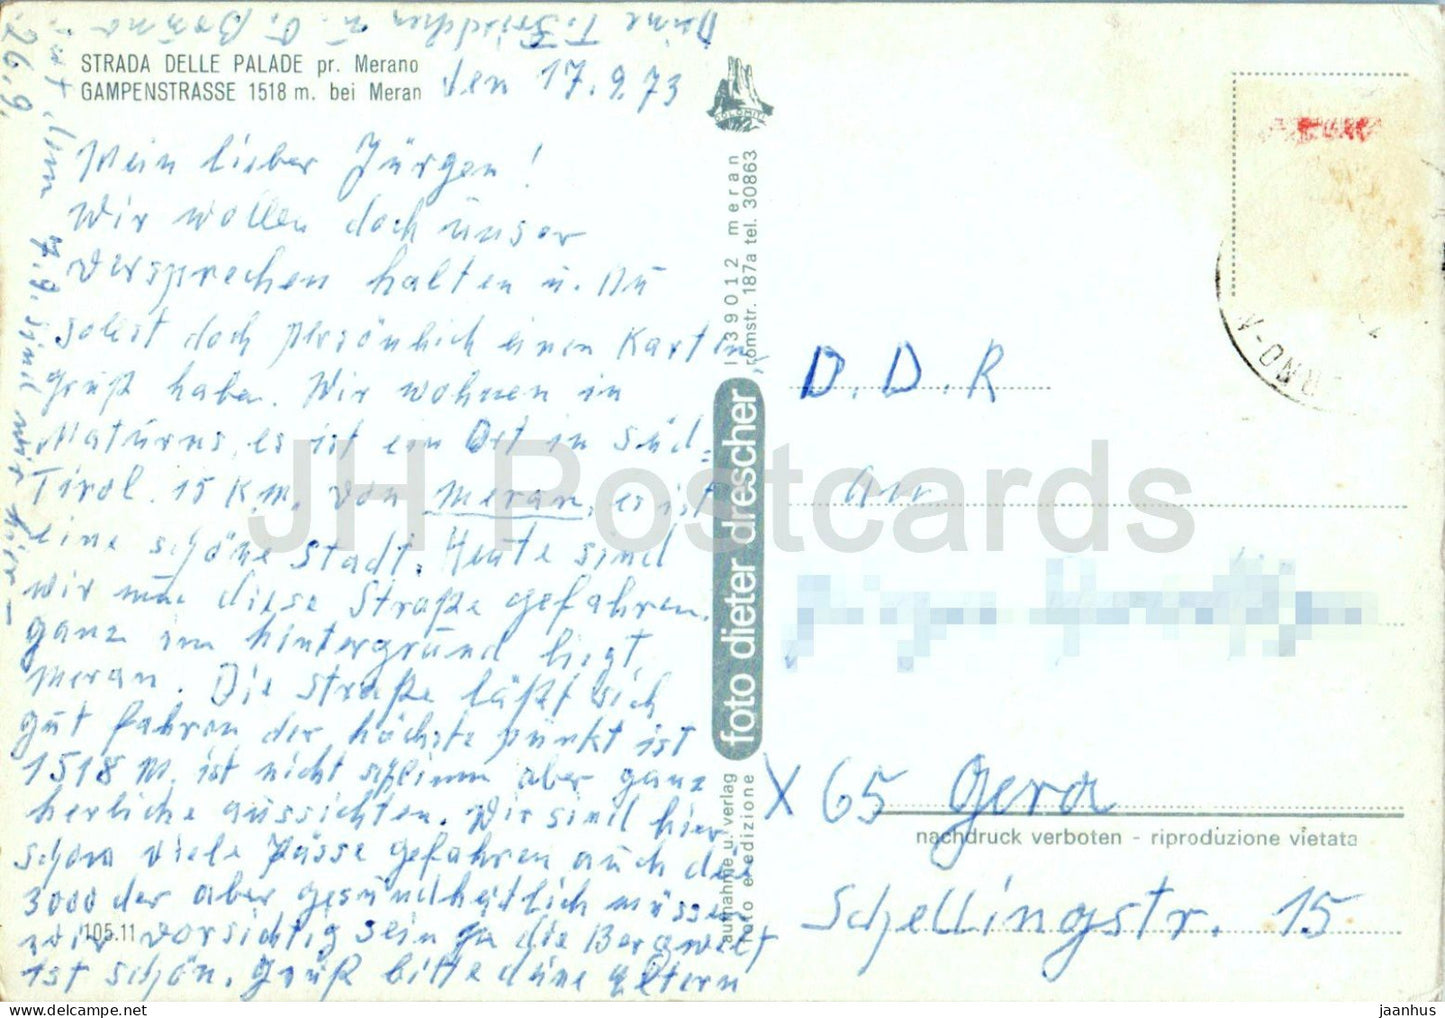 STRADA DELLE PALADE pr. Merano
GAMPENSTRASSE 1518 m. bei Meran
den 17.9.73
Mein lieber Jürgen!
Wir wollen doch unser
versprechen halten u. Du
solst doch persönlich einen Karten
gruß haben. Wir wohnen in
Naturns, es ist ein Ort in Süd-
Tirol. 15 K.M. von Meran, es ist
eine schöne Stadt. Heute sind
wir nun diese Straße gefahren.
ganz im hintergrund liegt
Meran. Die Straße läßt sich
gut fahren der höchste punkt ist
1518 M. ist nicht schlimm aber ganz
herliche aussichten. Wir sind hier
schon viele Pässe gefahren auch die
3000der aber gesundheitlich müssen
wir vorsichtig sein ja die Bergwelt
ist schön. Gruß bitte deine Eltern
Vom 7.9. sind wir hier –
26.9.
Deine T. Friedchen u. O. Bruno
105.11
foto dieter drescher
I 39012 meran
romstr. 187a tel. 30863
aufnahme u. verlag
foto e edizione
DOLOMITEN
D.D.R
An
X 65 Gera
nachdruck verboten - riproduzione vietata
Schellingstr. 15
JH Postcards
jaanhus